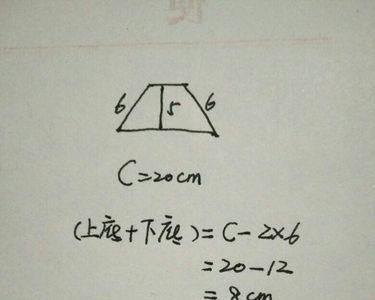 6 5 6
C=20cm
(上底+下底)=C-2×6
=20-12
=8cm